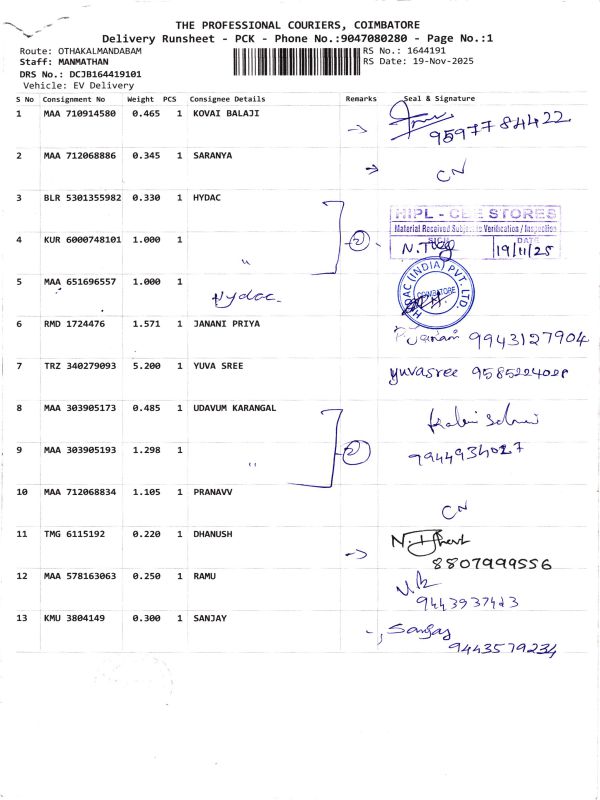 THE PROFESSIONAL COURIERS, COIMBATORE
Delivery Runsheet - PCK - Phone No.:9047080280 - Page No.:1
Route: OTHAKALMANDABAM
RS No.: 1644191
Staff: MANMATHAN
RS Date: 19-Nov-2025
DRS No.: DCJB164419101
Vehicle: EV Delivery
S No Consignment No Weight PCS Consignee Details Remarks Seal & Signature
1 MAA 710914580 0.465 1 KOVAI BALAJI
9597784422
2 MAA 712068886 0.345 1 SARANYA
CN
3 BLR 5301355982 0.330 1 HYDAC
HIPL - STORES
Material Received Subject to Verification / Inspection
4 KUR 6000748101 1.000 1 "
2
DATE
19/11/25
5 MAA 651696557 1.000 1 Hydac.
HYDAC (INDIA) PVT. LTD.
COIMBATORE
6 RMD 1724476 1.571 1 JANANI PRIYA
9943127904
7 TRZ 340279093 5.200 1 YUVA SREE
yuvasree
8 MAA 303905173 0.485 1 UDAVUM KARANGAL
9 MAA 303905193 1.298 1 "
2
9944934027
10 MAA 712068834 1.105 1 PRANAVV
CN
11 TMG 6115192 0.220 1 DHANUSH
8807999556
12 MAA 578163063 0.250 1 RAMU
13 KMU 3804149 0.300 1 SANJAY
Sanjay
9443579234